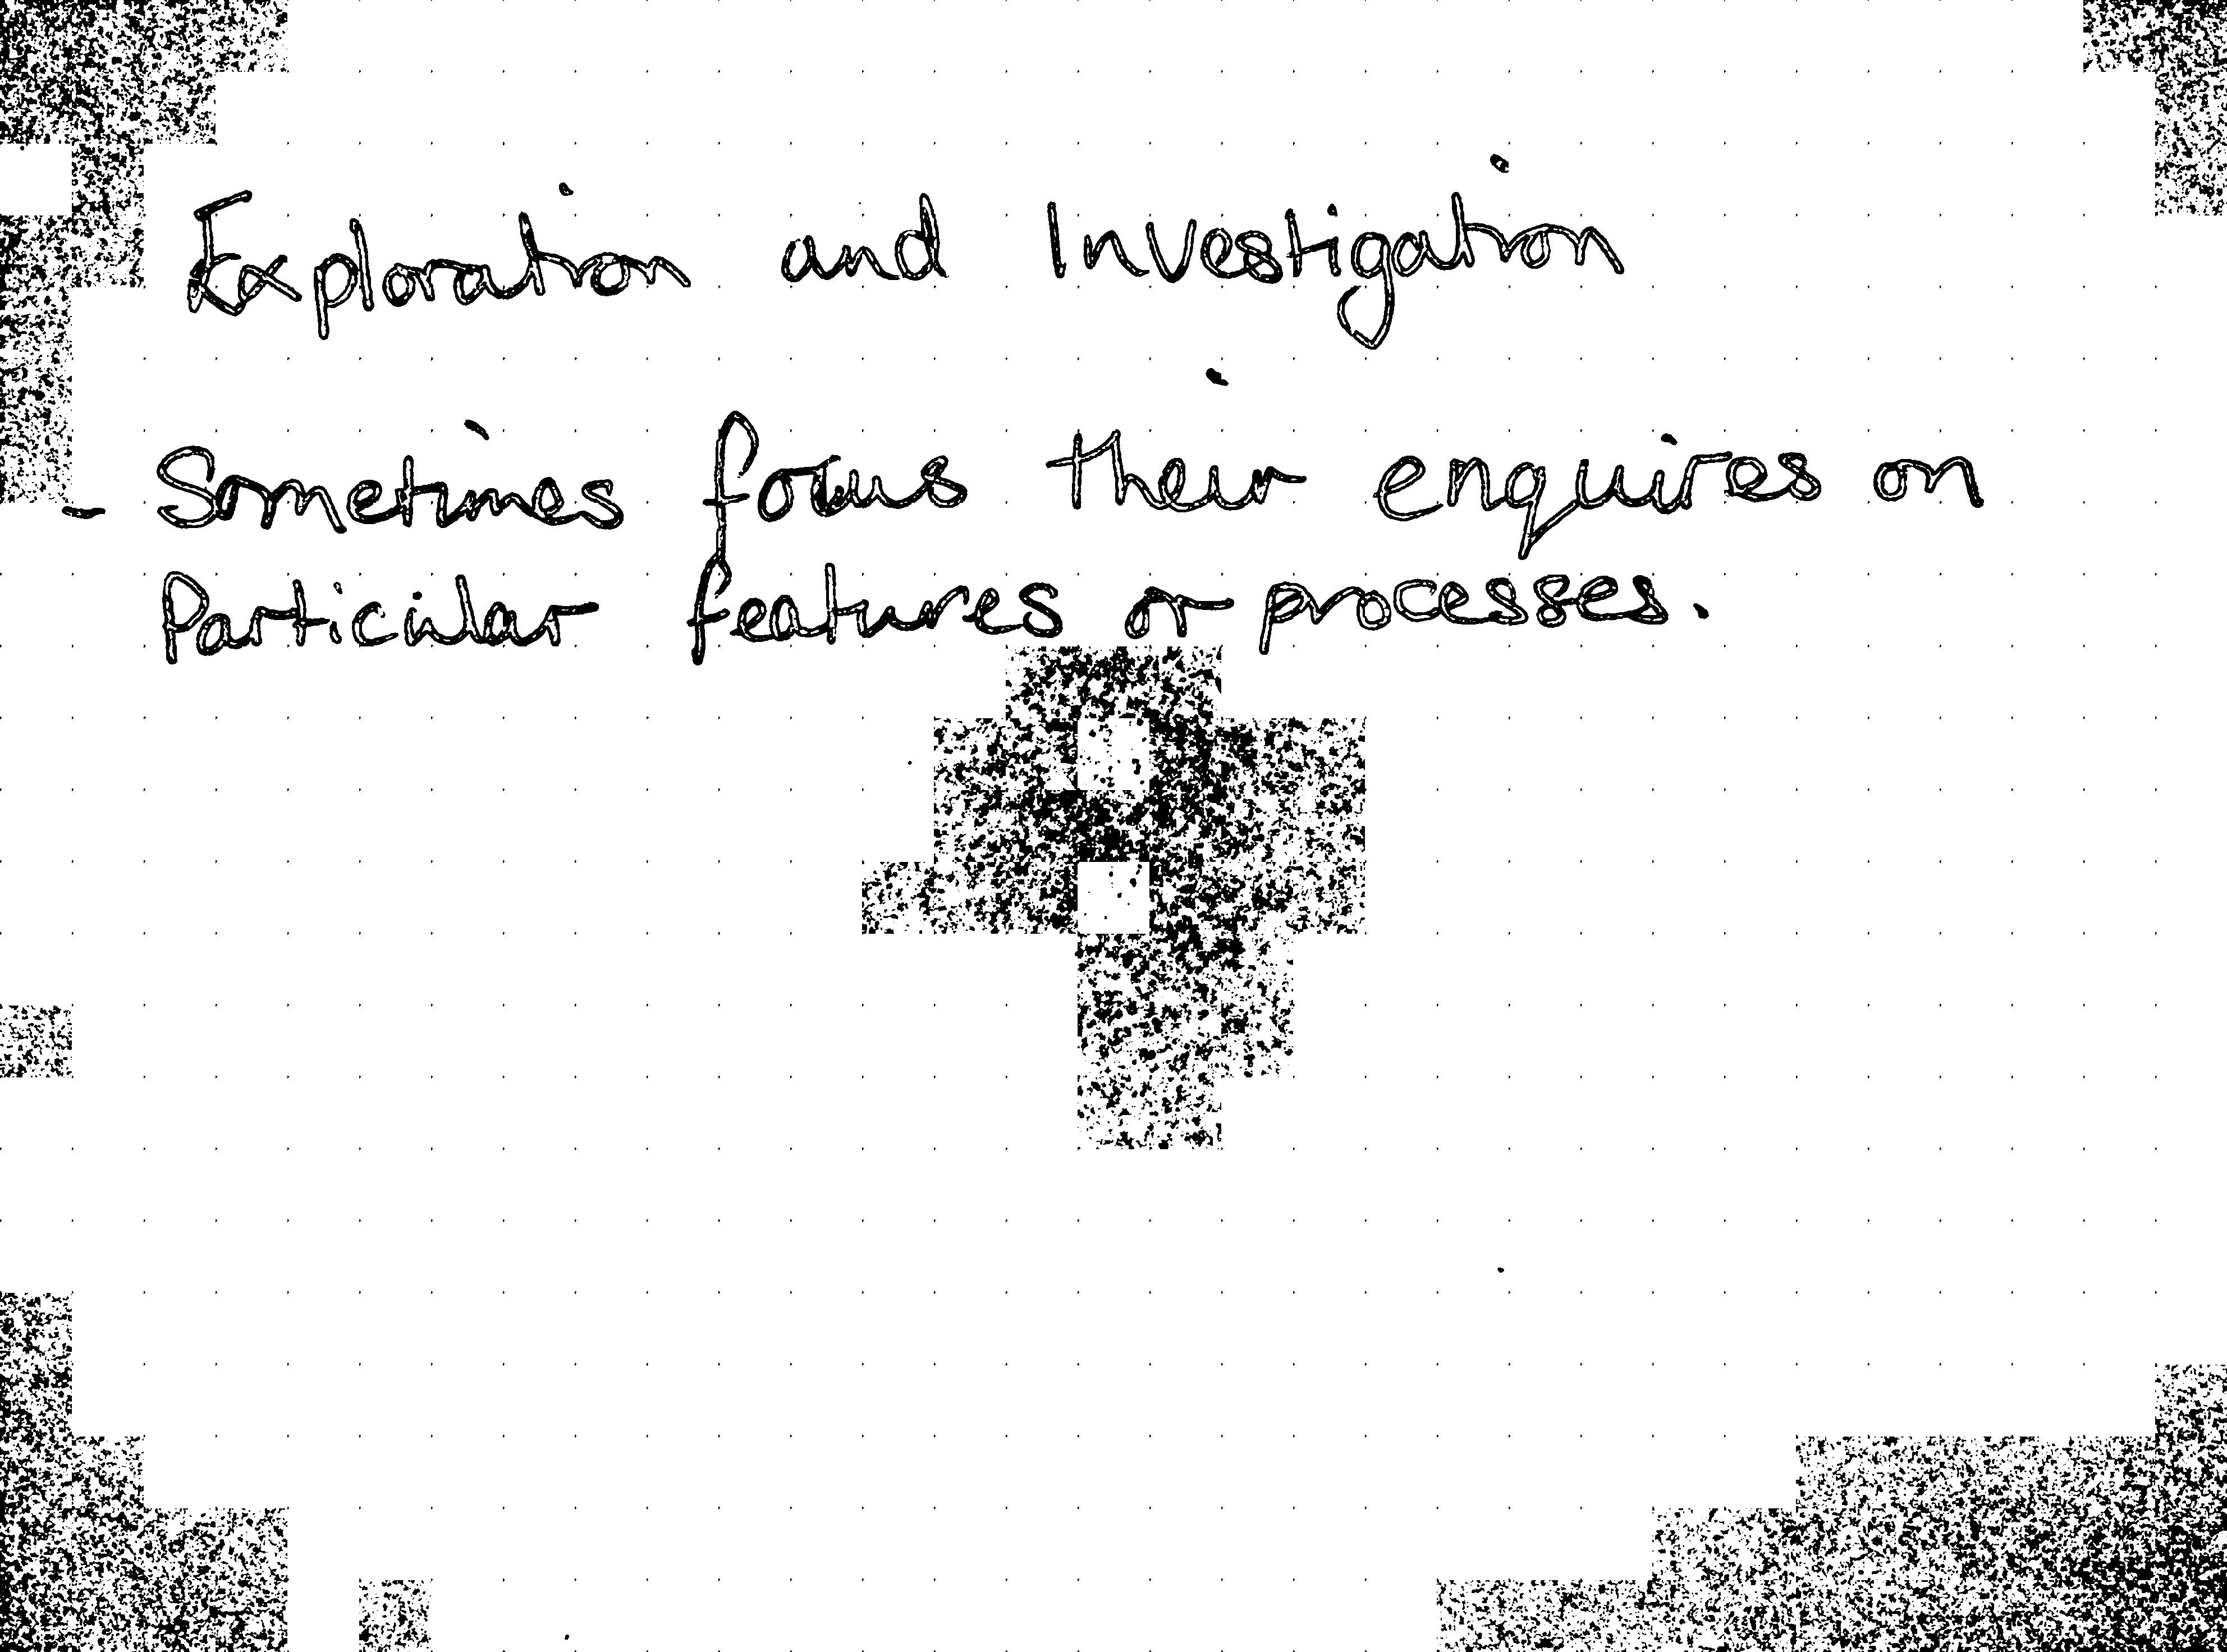 Exploration and Investigation
- Sometimes focus their enquires on
Particular features or processes.